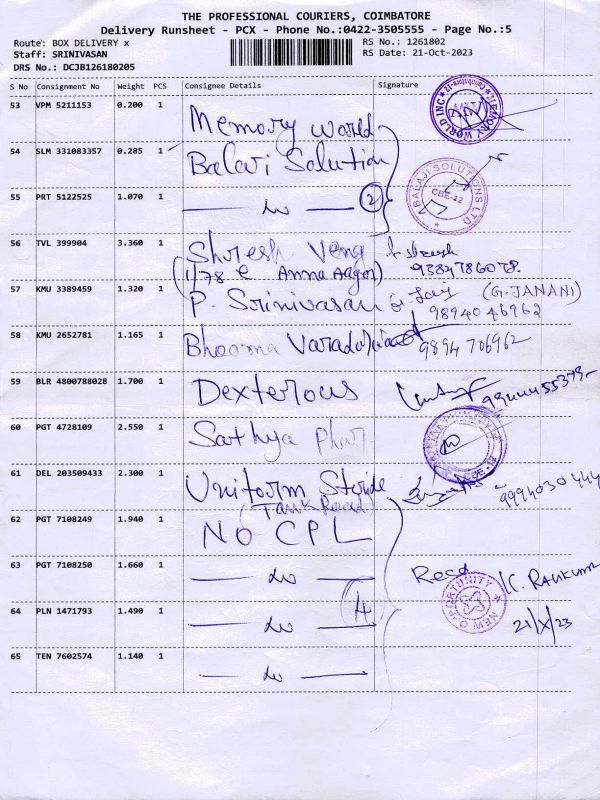 THE PROFESSIONAL COURIERS, COIMBATORE
Delivery Runsheet - PCX - Phone No.:0422-3505555 - Page No.:5
Route: BOX DELIVERY x
RS No.: 1261802
Staff: SRINIVASAN
RS Date: 21-Oct-2023
DRS No.: DCJB126180205
S No Consignment No Weight PCS Consignee Details Signature
53 VPM 5211153 0.200 1 Memory World
MEMORY WORLD INC
54 SLM 331083357 0.285 1 Balavi Solution
BALAJI SOLUTIONS LTD
CBE-12
55 PRT 5122525 1.070 1 — do — 2
56 TVL 399904 3.360 1 Shuresh Veng
(1/78 C Anna Nagar) 9384786078.
57 KMU 3389459 1.320 1 P. Srinivasan (G.JANANI)
9894046962
58 KMU 2652781 1.165 1 Bhooma 9894706962
59 BLR 4800788028 1.700 1 Dexterous
60 PGT 4728109 2.550 1 Sathya
61 DEL 203509433 2.300 1 Uniform Stride 9994030444
(Tank Road)
62 PGT 7108249 1.940 1 NO CPL
63 PGT 7108250 1.660 1 — do — Recd
NEW OPPORTUNITY
64 PLN 1471793 1.490 1 — do — 4 21/X/23
65 TEN 7602574 1.140 1 — do —